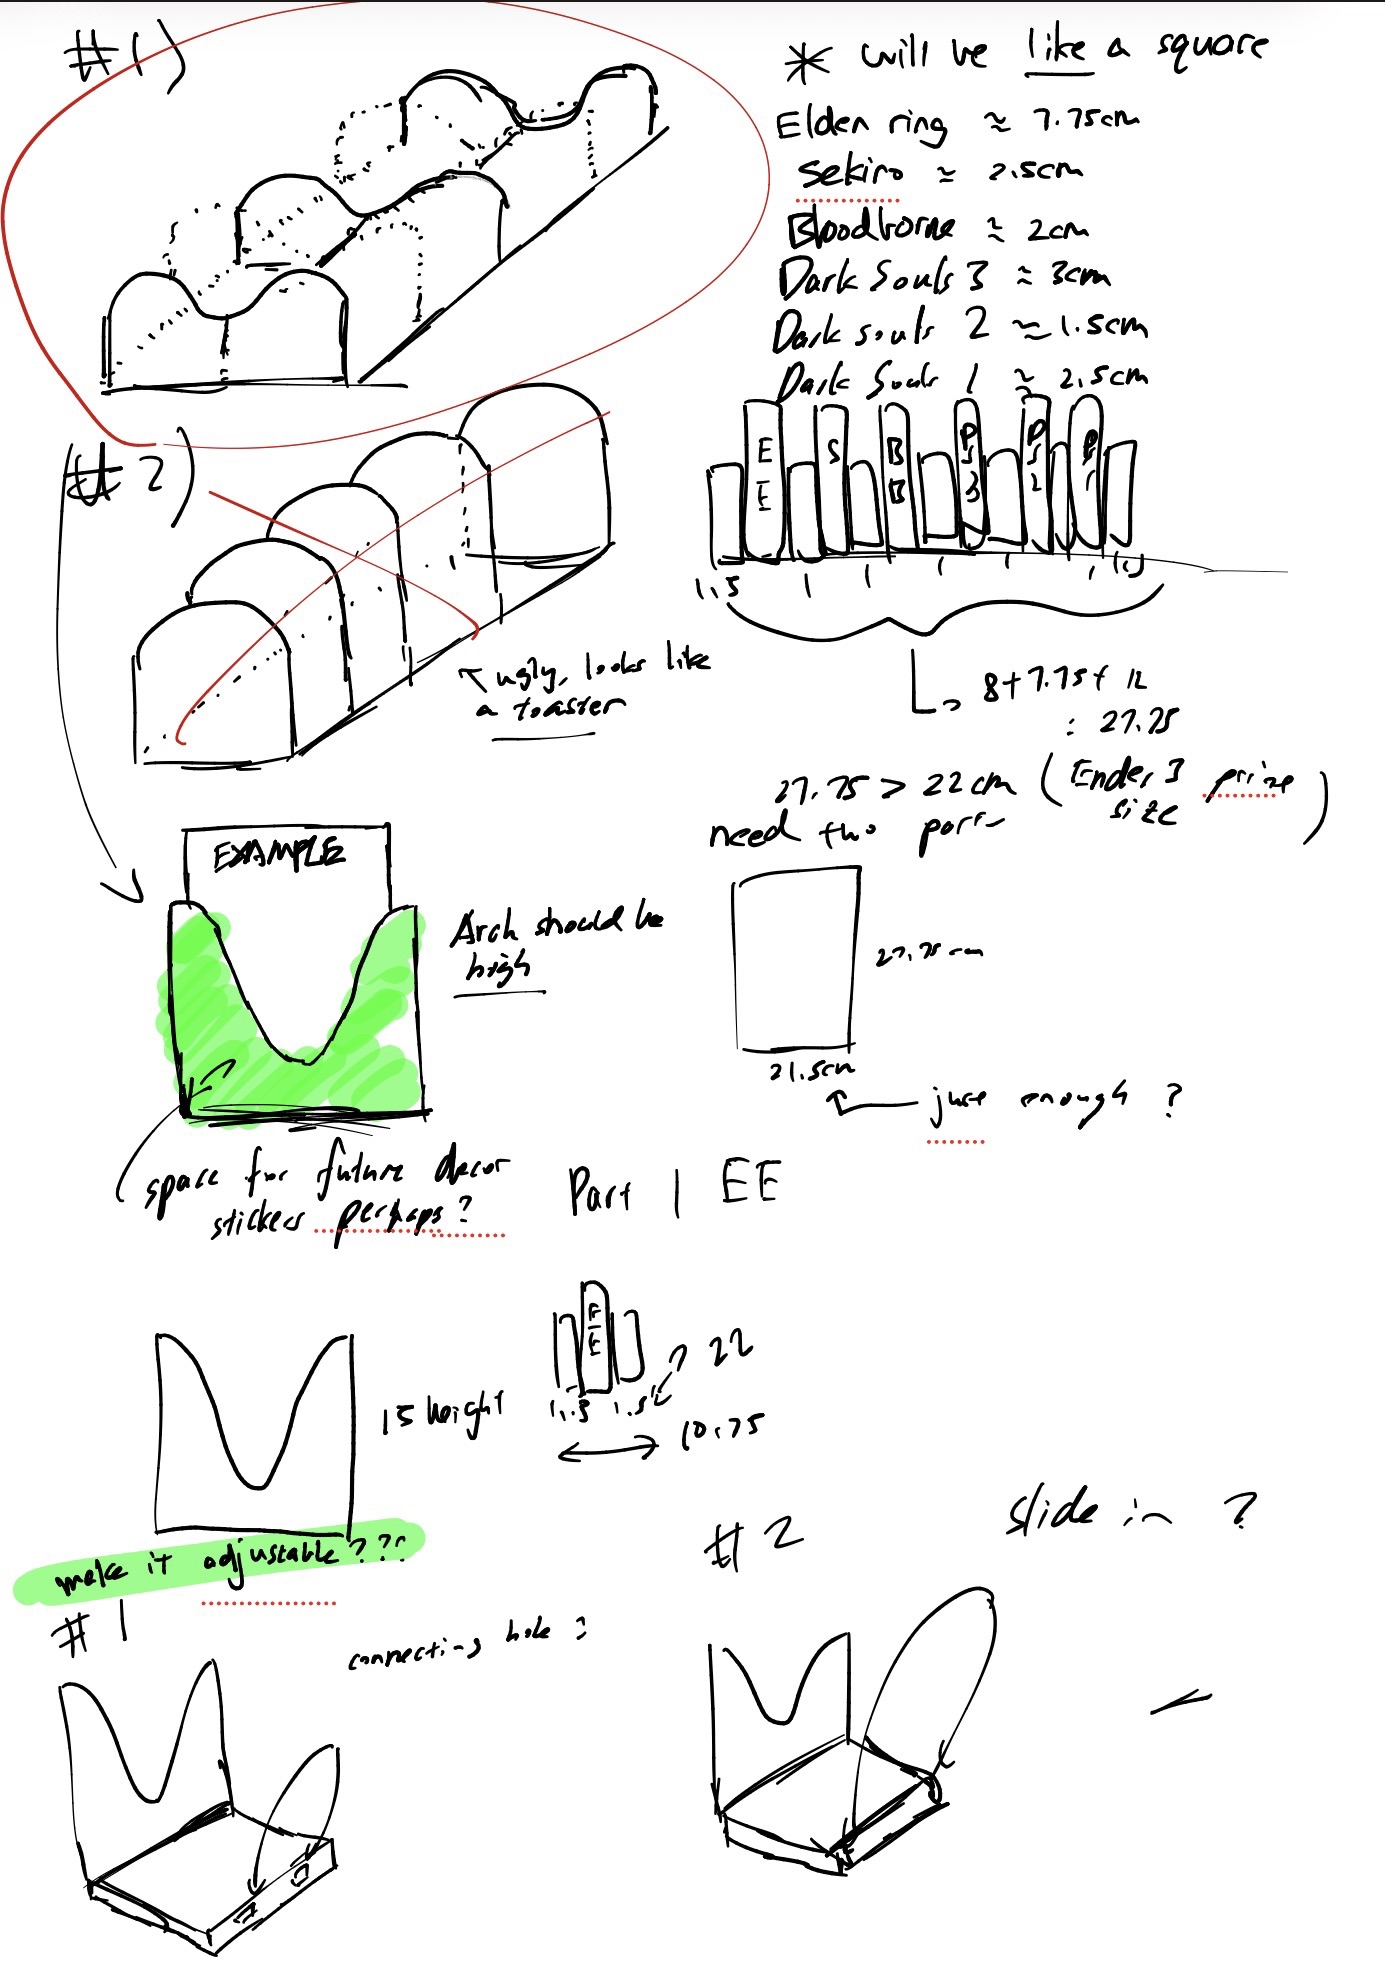 #1)
* will be like a square
Elden ring ≈ 7.75cm
Sekiro ≈ 2.5cm
Bloodborne ≈ 2cm
Dark Souls 3 ≈ 3cm
Dark souls 2 ≈ 1.5cm
Dark Souls 1 ≈ 2.5cm
#2)
E
E
S
B
B
DS
3
DS
2
DS
1
1.5
1
1
1
1
1
1.5
ugly, looks like
a toaster
8+7.75+12
: 27.75
27.75 > 22cm (Ender 3 prize
size)
need two parts
EXAMPLE
Arch should be
high
27.75 cm
21.5cm
just enough ?
space for future decor
stickers perhaps?
Part 1 EE
EE
22
15 height
1.5 1.5
10.75
make it adjustable???
#1
connecting hole ?
#2
slide in ?